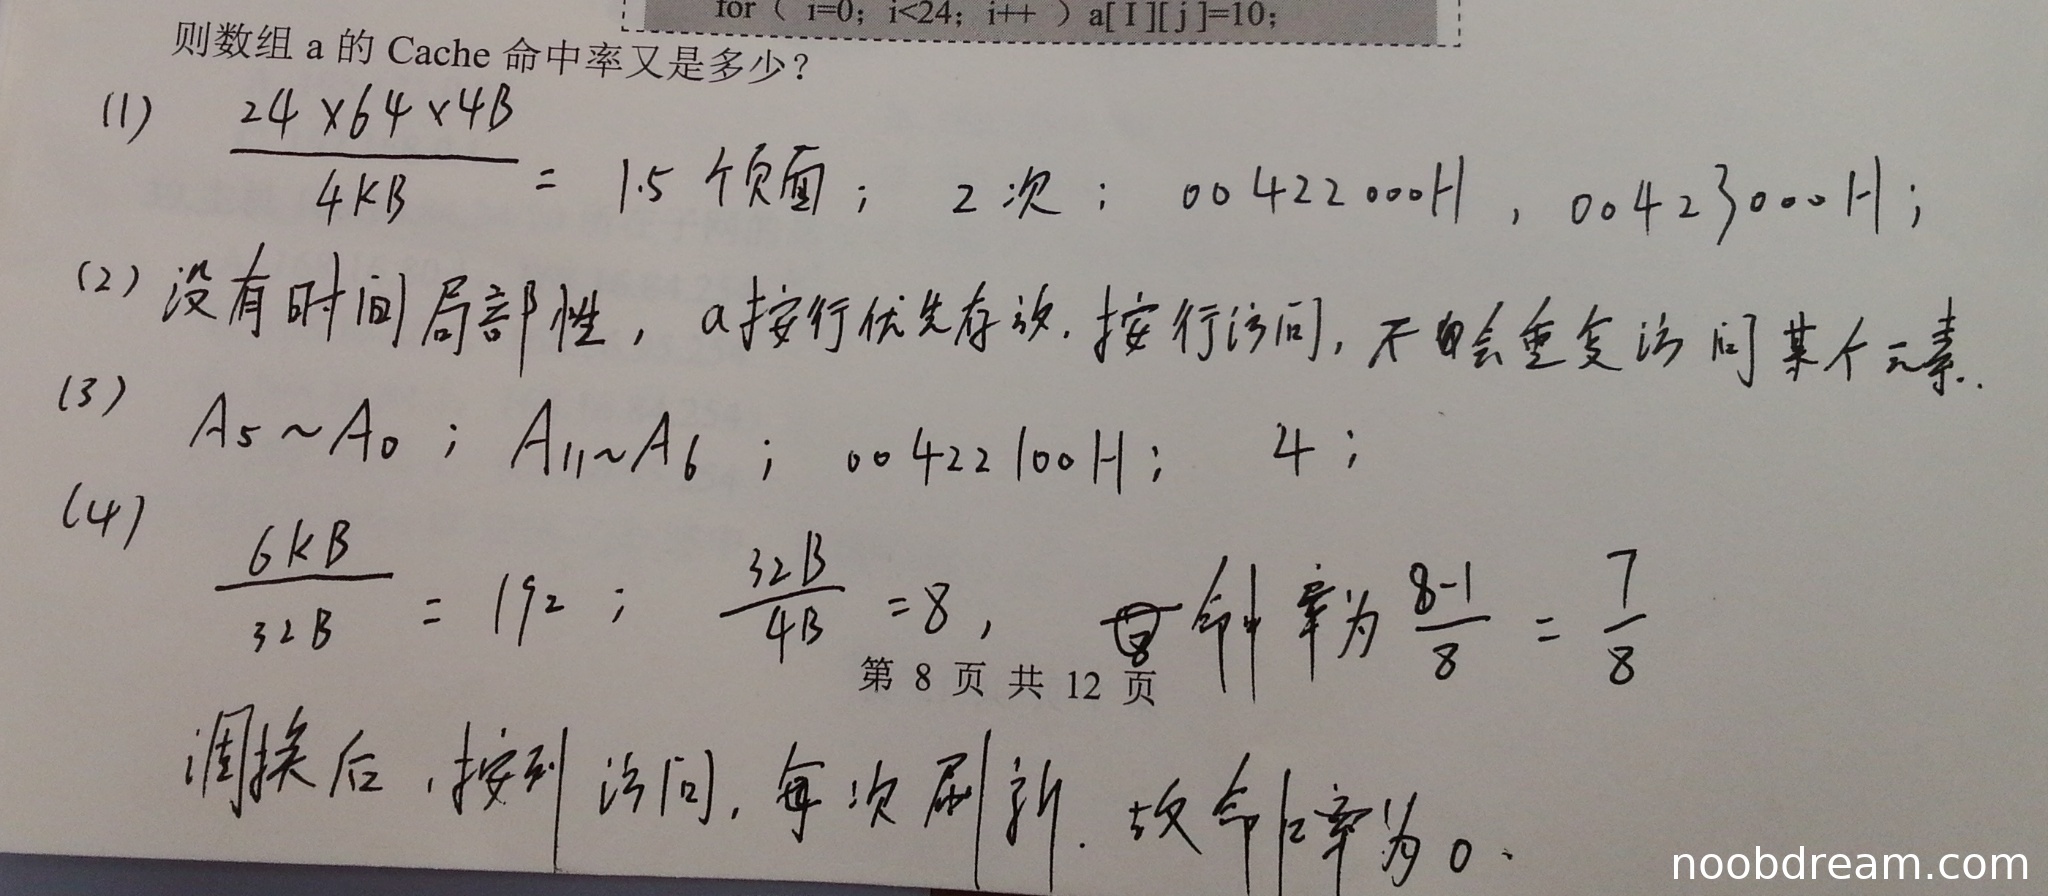 for（ i=0；i<24；i++ ）a[ I ][ j ]=10；
则数组 a 的 Cache 命中率又是多少？
(1) 24×64×4B / 4KB = 1.5 个页面； 2 次； 00422000H，00423000H；
(2) 没有时间局部性，a按行优先存放，按行访问，不会重复访问某个元素.
(3) A5~A0； A11~A6； 00422100H； 4；
(4) 6KB / 32B = 192； 32B / 4B = 8， 命中率为 8-1 / 8 = 7 / 8
第 8 页 共 12 页
调换后，按列访问，每次刷新. 故命中率为0.
noobdream.com